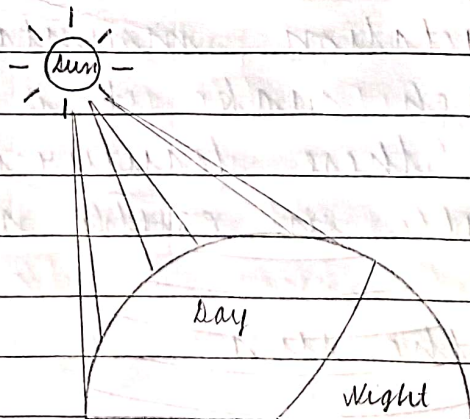 Sun
Day
Night